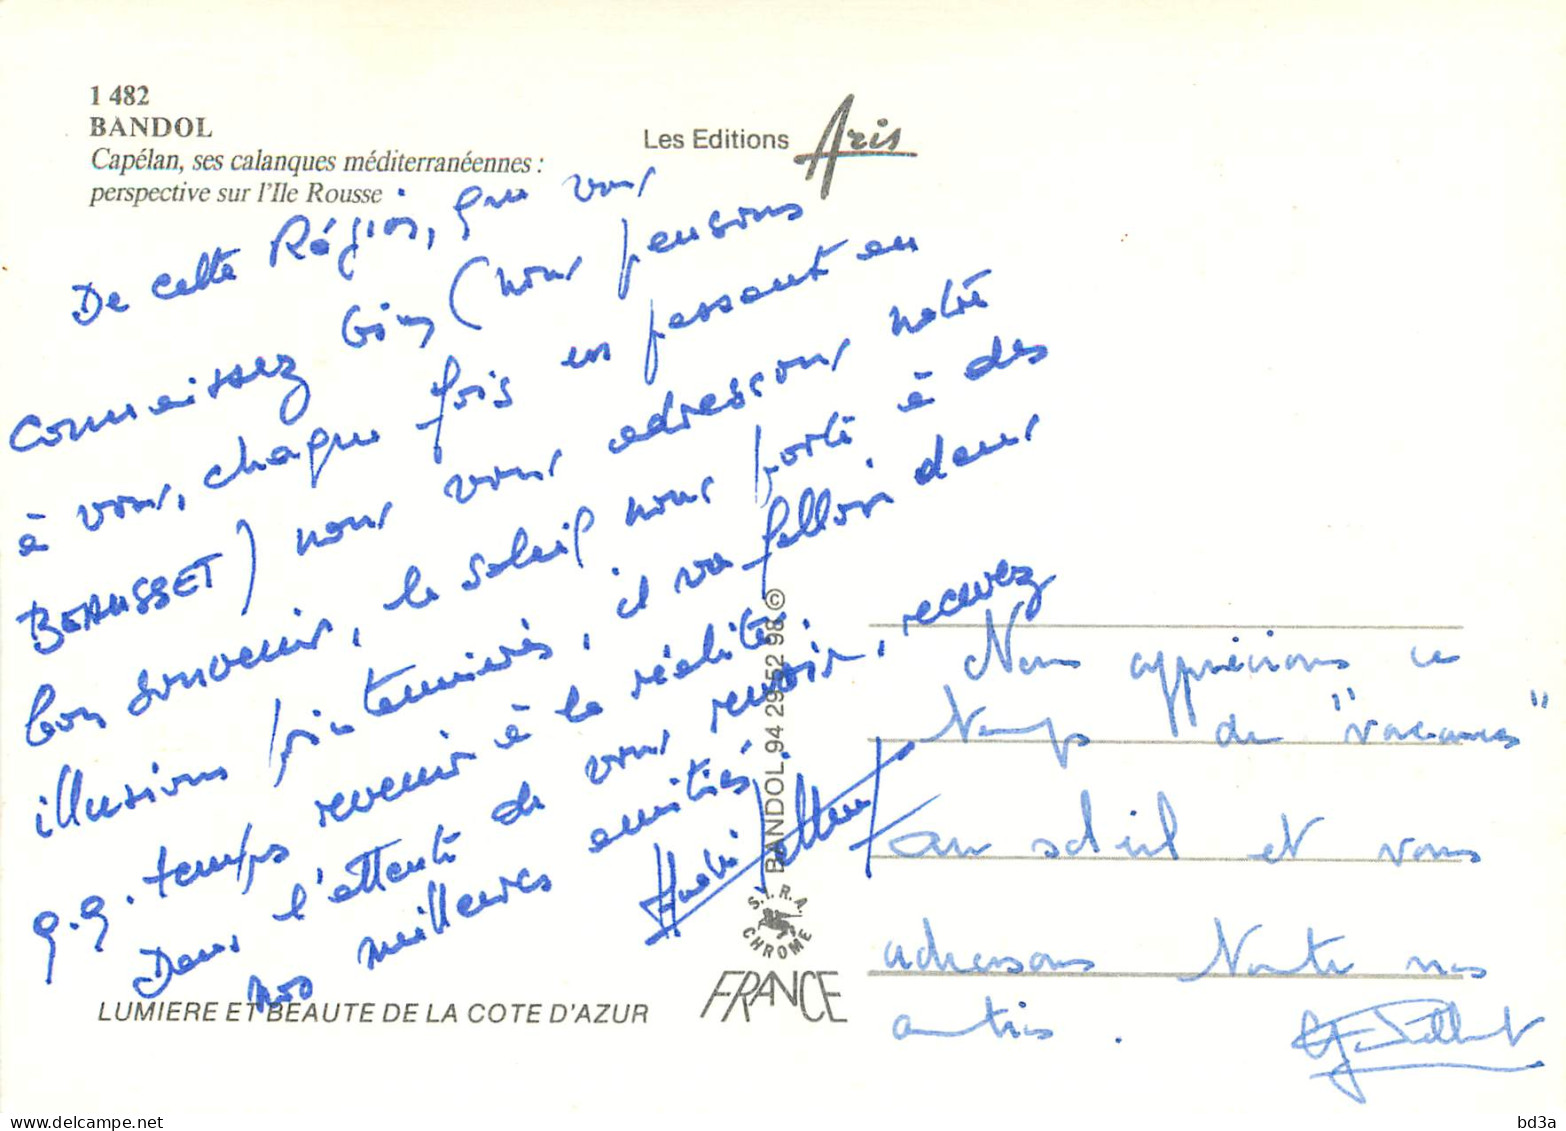 1 482
BANDOL
Capélan, ses calanques méditerranéennes :
perspective sur l'Ile Rousse
Les Editions Aris
De cette Région, que vous
connaissez bien (nous pensons
à vous, chaque fois en passant au
BEAUSSET) nous vous adressons notre
bon souvenir, le soleil nous porte à des
illusions printanières, il va falloir dans
q.q. temps revenir à la réalité.
Dans l'attente de vous revoir, recevez
nos meilleures amitiés.
BANDOL 94 29 52 98 ©
S.I.R.A.
CHROME
FRANCE
LUMIERE ET BEAUTE DE LA COTE D'AZUR
Nous apprécions ce
temps de "vacances"
au soleil et vous
adressons toutes nos